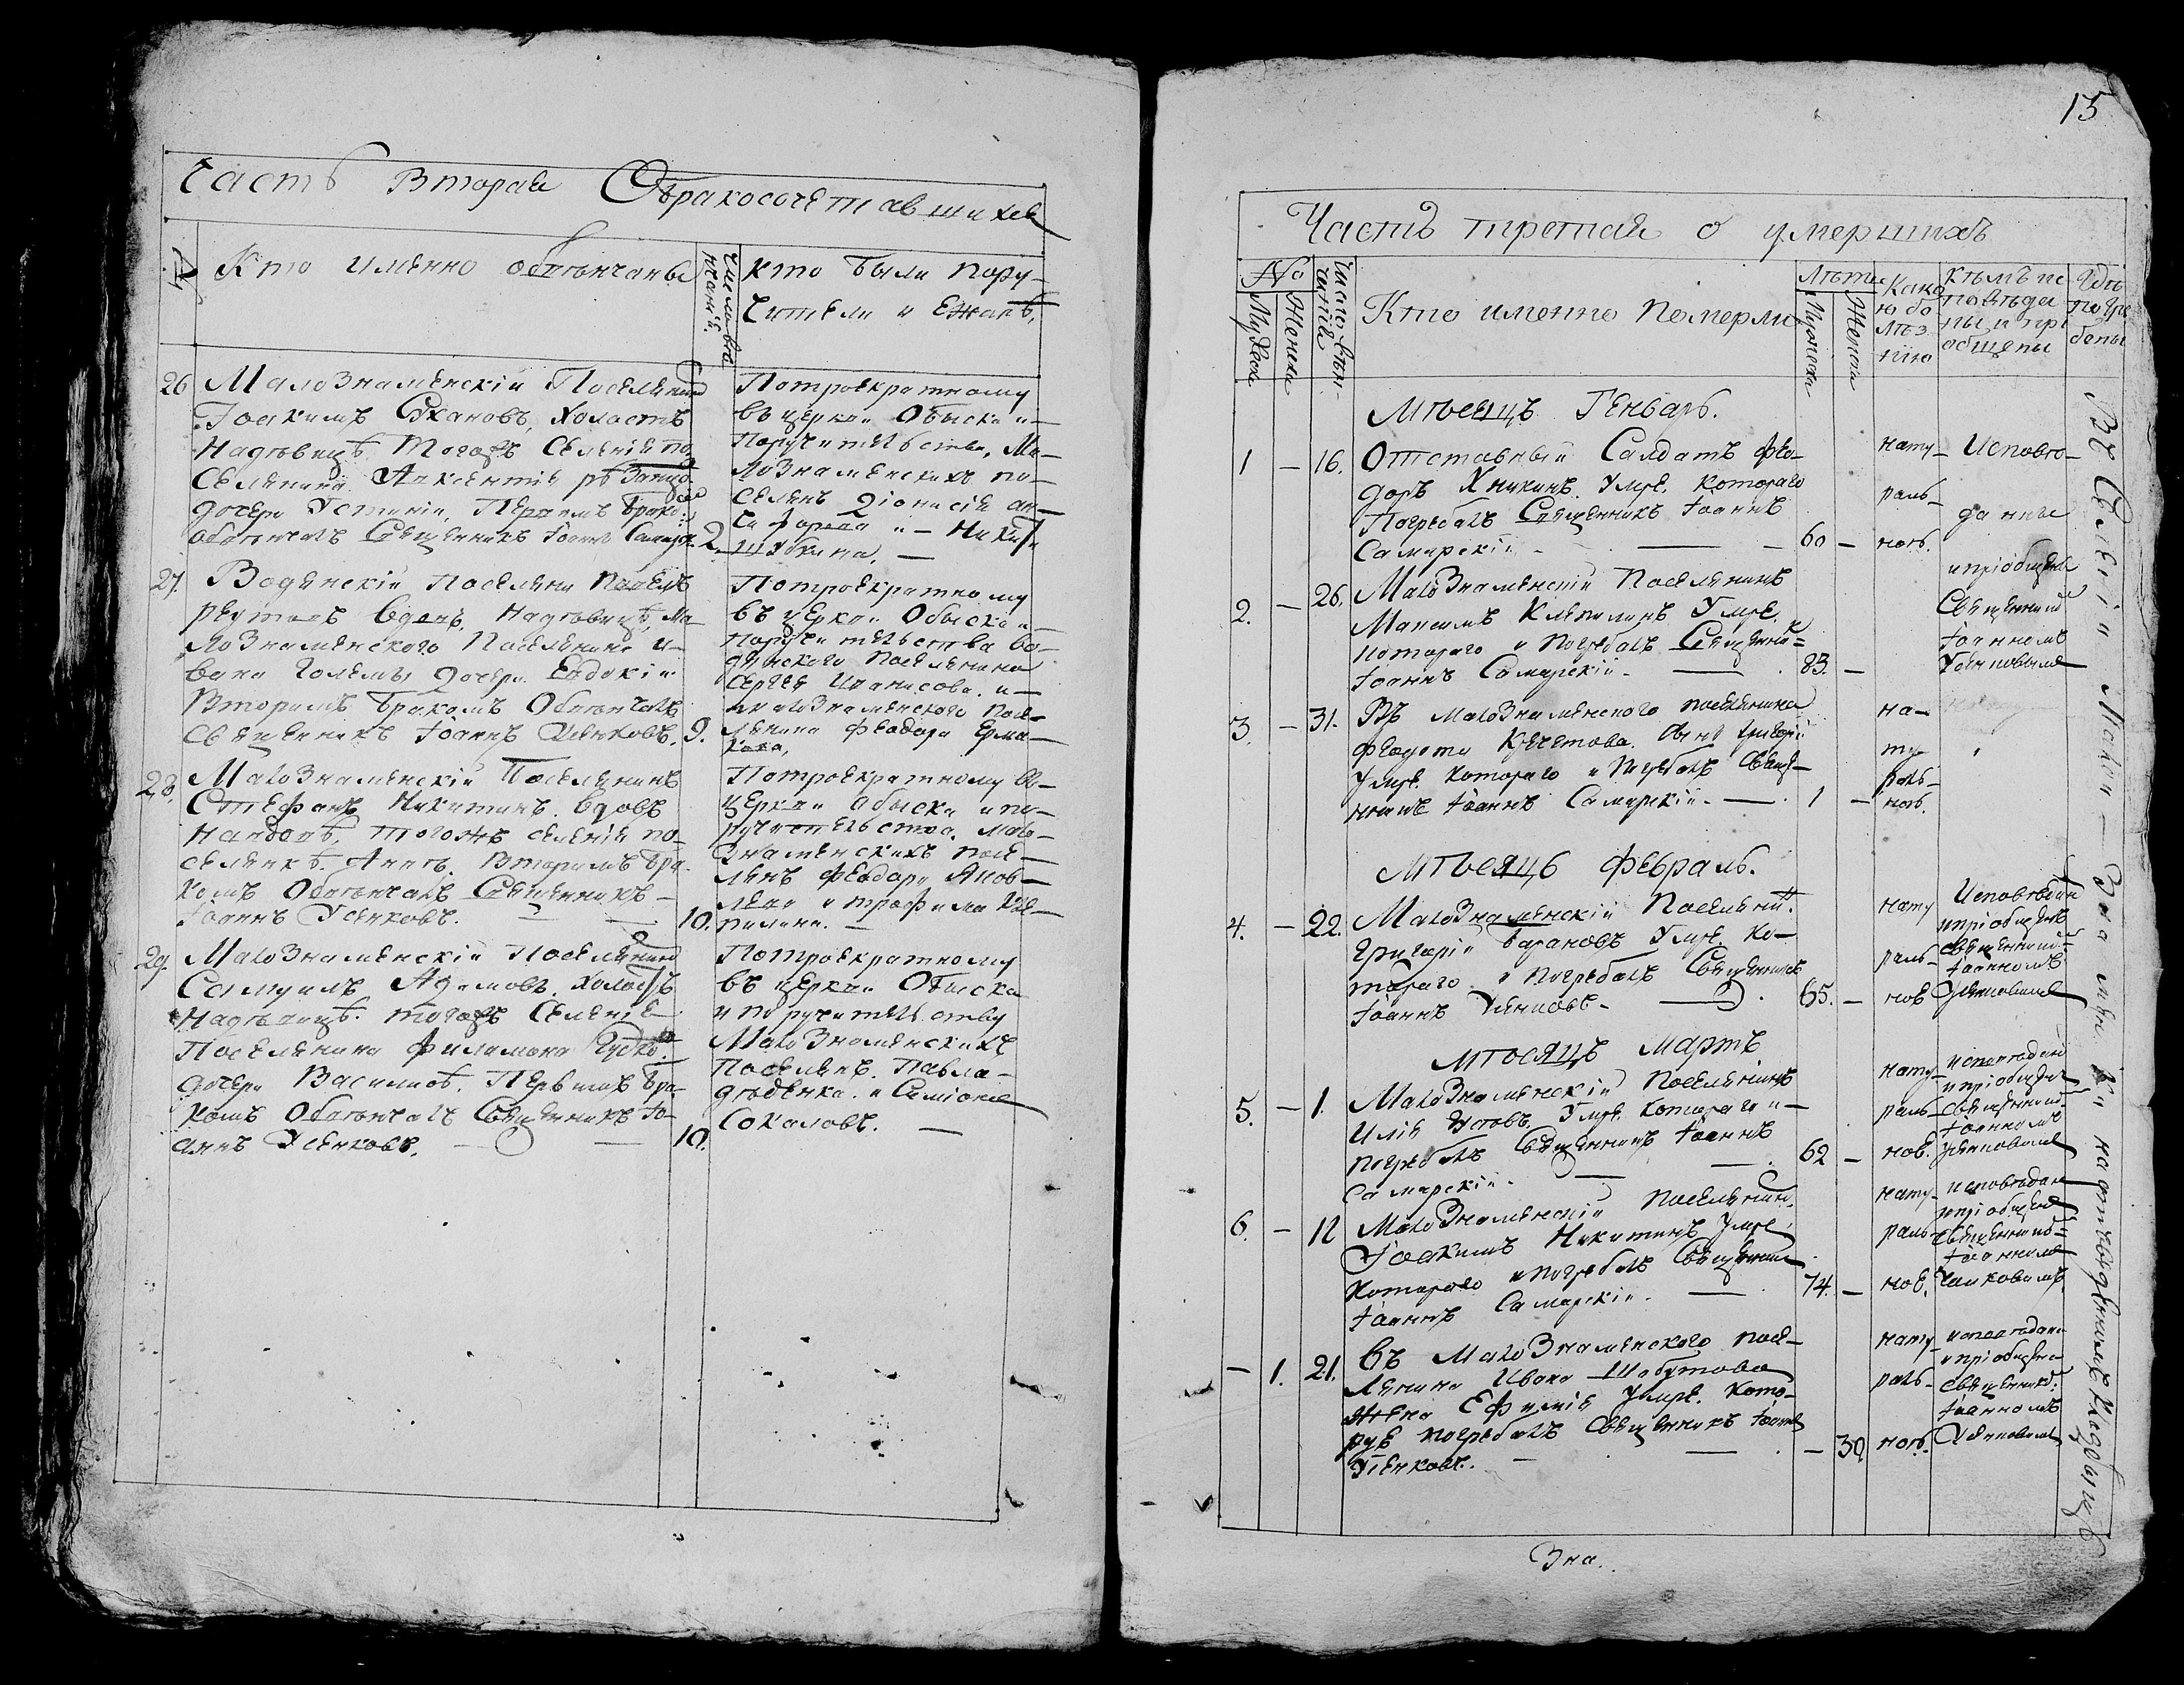 Часть Вторая О бракосочетавшихся
№
Кто именно обвенчаны
число венчаній
кто были пору-
чители и Ежавъ.
26
МалоЗнаменскій Поселянинъ
Іоакимъ холостъ
На девицѣ Тогожъ Селенія по-
Селянина
дочери Устиніи, Первымъ Брако:
обвенчалъ Священникъ Іоаннъ Самарск:
2.
Потроекратному
въ церкви Обыску и
Поручительства, Ма-
лоЗнаменскихъ по-
селянъ Діонисія
и Ники
27.
Водянскій Поселянинъ
вдовъ, На девицѣ, Ма-
лоЗнаменского Поселянина И-
вана дочери Евдокіи
Вторымъ Бракомъ Обвенчалъ
Священникъ Іоаннъ Усенковъ.
9.
Потроекратному
въ церкви Обыску и
поручительства во-
дянского Поселянина
Сергея и
малоЗнаменского посе-
лянина Феодора Ерма-
кова,
28.
МалоЗнаменскій Поселянинъ
Стефанъ Никитинъ вдовъ
На вдовѣ, тогожъ селенія по-
селянкѣ Аннѣ. Вторымъ Бра-
комъ Обвенчалъ Священникъ
Іоаннъ Усенковъ.
10.
Потроекратному во
церкви обыску и по-
ручительства, мало-
Знаменскихъ посе-
лянъ Феодора Яков-
лева и трофима
29.
МалоЗнаменскій Поселянинъ
Самуилъ Адамовъ, холостъ
На девицѣ тогожъ Селенія
Поселянина Филимона
дочери Василисѣ. Первымъ Бра-
комъ Обвенчалъ Священникъ Іо-
аннъ Усенковъ.
10.
Потроекратному
въ церкви Обыска
и поручительству
МалоЗнаменскихъ
Поселянъ. Павла
и Симіона
Соколовъ.
15
Часть третая о умершихъ
№
Мужеска
Женска
Число
Кто именно Померли
Лѣта
Мужеска
Женска
Како
ю бо
лѣз
нію
Кѣмъ ис
повѣда
ны и прі
общены
Гдѣ
погре
бены
Мѣсецъ Генварь.
1 — 16.
Отставный Салдатъ Фео-
доръ Умре, котораго
Погребалъ Священникъ Іоаннъ
Самарскій
60 —
нату-
раль-
ною.
Исповѣ-
данны
и пріобщены
Священни
Іоанномъ
Усенковымъ
2. — 26.
МалоЗнаменскій Поселянинъ
Максимъ Умре,
котораго и Погребалъ Священник
Іоаннъ Самарскій.
83. —
3 — 31.
Въ МалоЗнаменского поселянина
Федота Кречетова. сынъ григорій
Умре. котораго и Погребалъ Свеще-
нникъ Іоаннъ Самарскій.
1 —
на-
ту-
раль-
ною.
Мѣсяцъ Февраль.
4. — 22.
МалоЗнаменскій Поселянин
Григорій Барановъ Умре. ко-
тораго и Погребалъ Священникъ
Іоаннъ Усенковъ.
65. —
нату
раль-
ною
Исповѣдан
и пріобщенъ
Священни
Іоанномъ
Усенковымъ
Мѣсяцъ Мартъ.
5. — 1.
МалоЗнаменскій Поселянинъ
Илія Умре. котораго и
погребалъ Священникъ Іоаннъ
Самарскій.
62 —
нату-
раль-
ною.
исповѣдан
и пріобщен
Священни
Іоанномъ
Усенковымъ
6. — 12
МалоЗнаменскій Поселянин.
Іоакимъ Никитинъ Умре,
котораго и Погребалъ Священник
Іоаннъ Самарскій.
74. —
нату-
раль-
ною.
исповѣдан
и пріобщен
Священни
Іоанномъ
Усенковымъ.
— 1. 21.
Въ МалоЗнаменского посе-
лянина Ивана
Жена Ефимія Умре. кото-
рую погребалъ Священникъ Іоаннъ
Усенковъ.
— 39
нату-
раль-
ною.
исповѣдана
и пріобщена
Священни
Іоанномъ
Усенковымъ
Въ Селеніи Малой Знаменки на отведенномъ Кладбищѣ
Зна.